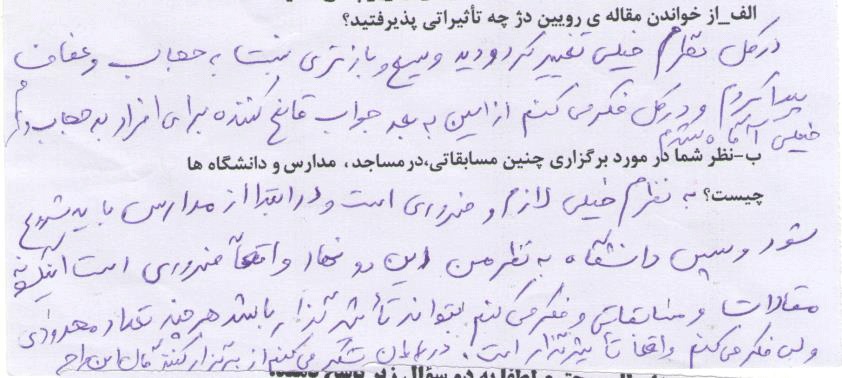 الف_از خواندن مقاله ی رویین دژ چه تأثیراتی پذیرفتید؟
در کل نظرم خیلی تغییر کرد و دید وسیع و بازتری نسبت به حجاب و عفاف
پیدا کردم و در کل فکر می کنم از این به بعد جواب قانع کننده برای افراد بد حجاب دارم
خیلی آگاه شدم
ب-نظر شما در مورد برگزاری چنین مسابقاتی،در مساجد، مدارس و دانشگاه ها
چیست؟ به نظرم خیلی لازم و ضروری است و در ابتدا از مدارس باید شروع
شود و سپس دانشگاه به نظر من این دو نهاد واقعاً ضروری است که اینگونه
مقالات و مسابقاتی و فکر می کنم بتواند تأثیر گذار باشد هر چند تعداد معدودی
ولی فکر می کنم واقعاً تأثیرگذار است. در پایان تشکر می کنم از برگزار کنندگان این طرح